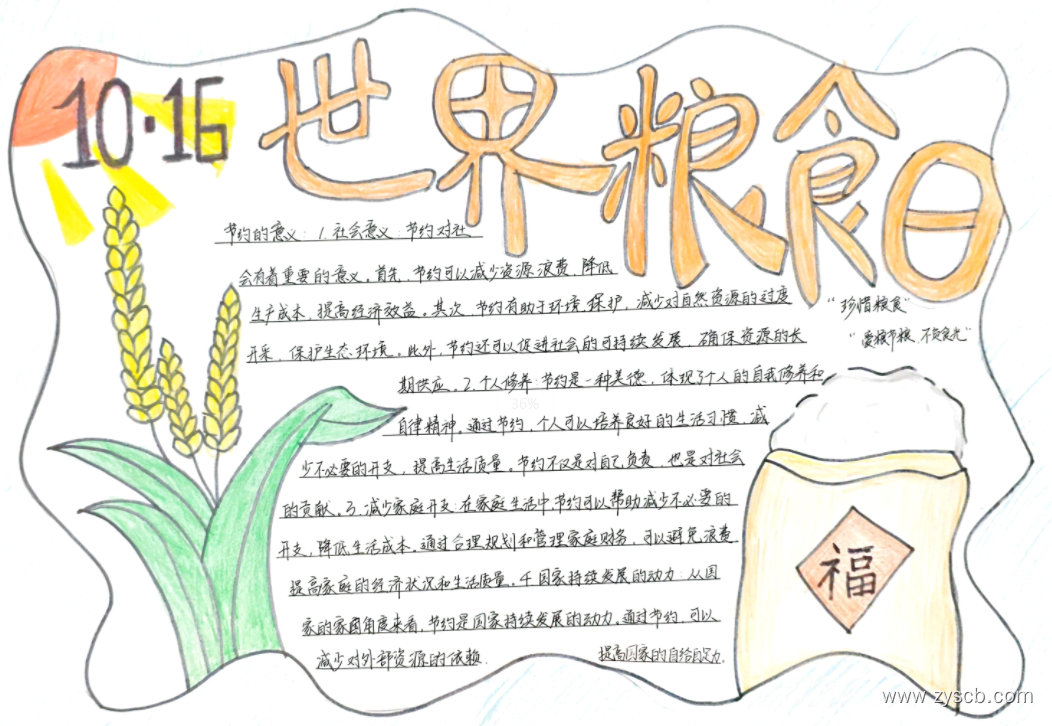 10·16
世界粮食日
节约的意义：1.社会意义：节约对社
会有着重要的意义。首先，节约可以减少资源浪费，降低
生产成本，提高经济效益。其次，节约有助于环境保护，减少对自然资源的过度
开采，保护生态环境。此外，节约还可以促进社会的可持续发展，确保资源的长
期供应。2.个人修养：节约是一种美德，体现了个人的自我修养和
自律精神。通过节约，个人可以培养良好的生活习惯，减
少不必要的开支，提高生活质量。节约不仅是对自己负责，也是对社会
的贡献。3.减少家庭开支：在家庭生活中，节约可以帮助减少不必要的
开支，降低生活成本。通过合理规划和管理家庭财务，可以避免浪费
提高家庭的经济状况和生活质量。4.国家持续发展的动力：从国
家的家国角度来看，节约是国家持续发展的动力。通过节约，可以
减少对外部资源的依赖，
提高国家的自给自足力。
“珍惜粮食”
“爱粮节粮，不负食光”
福
36%
www.zyscb.com